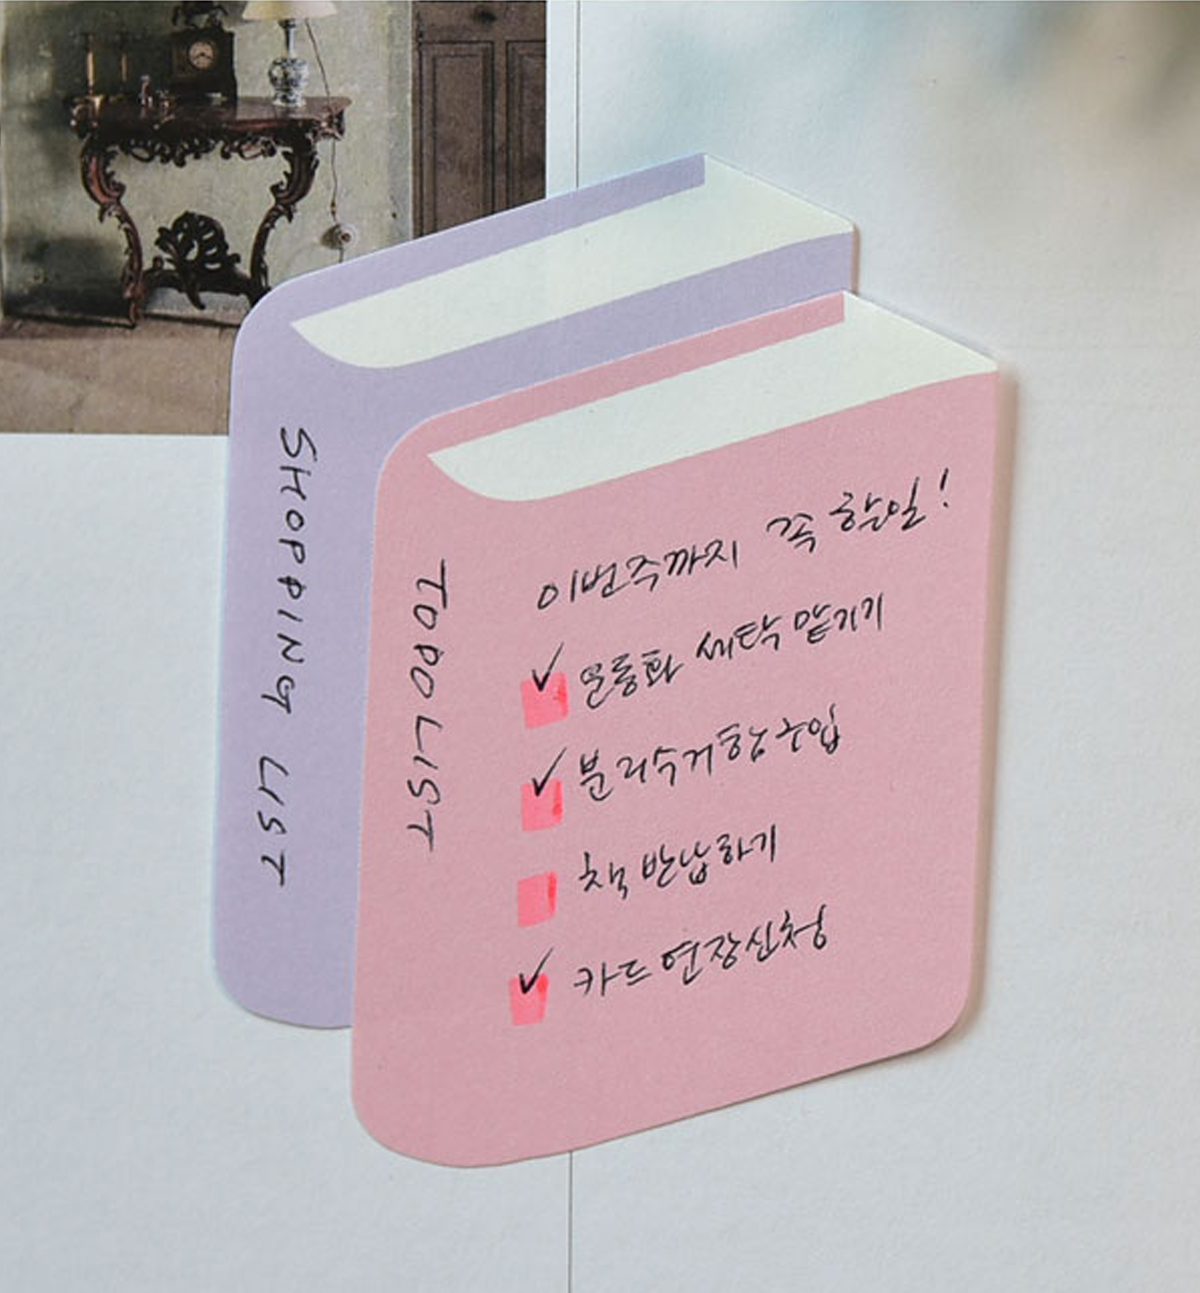 SHOPPING LIST
TODO LIST
이번주까지 꼭 할일!
✓ 운동화 세탁 맡기기
✓ 분리수거함 구입
책 반납하기
✓ 카드 연장신청